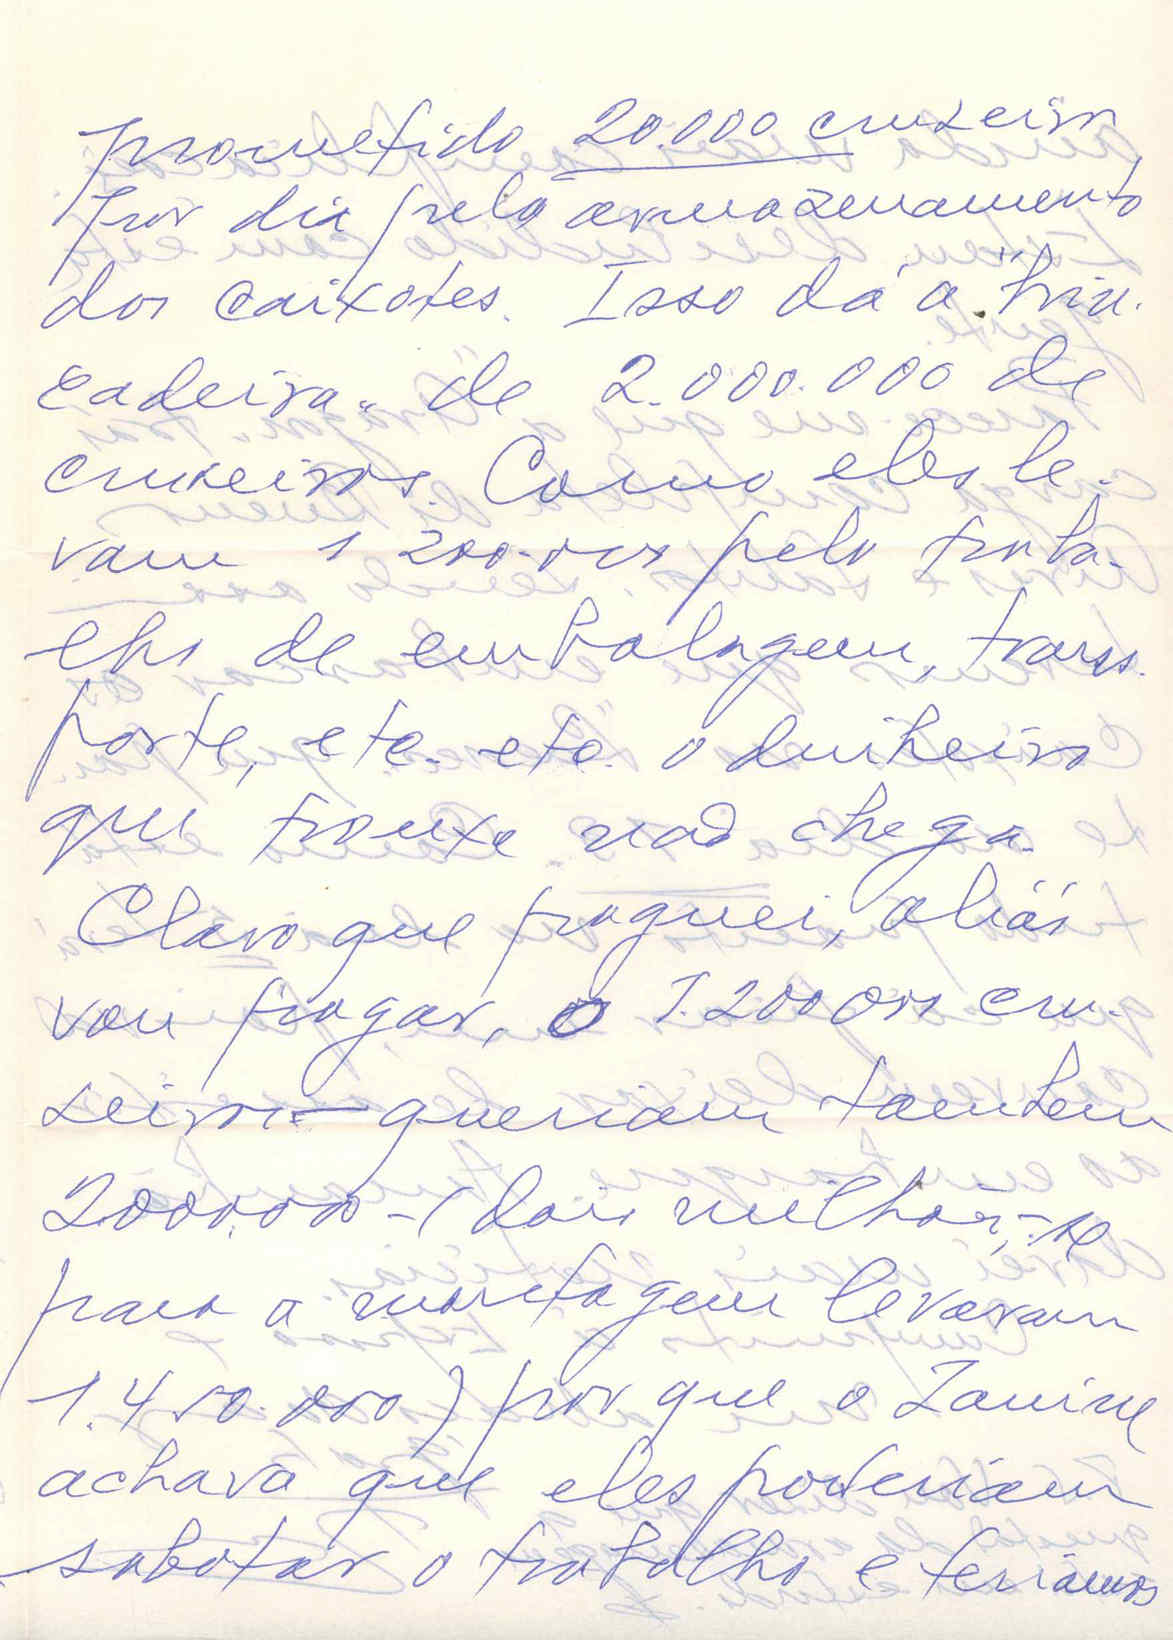 prometido 20.000 cruzeiros
por dia pelo armazenamento
dos caixotes. Isso dá a "brin-
cadeira" de 2.000.000 de
cruzeiros. Como eles le-
vam 1 200.000 pelo traba-
lho de embalagem, trans-
porte, etc. etc. o dinheiro
que trouxe não chega.
Claro que paguei, aliás
vou pagar, o 1.200 000 cru-
zeiros - queriam também
2.000.000 - (dois milhões, - se
para a montagem levaram
1.450.000) porque o Zanine
achava que eles poderiam
sabotar o trabalho e teriamos